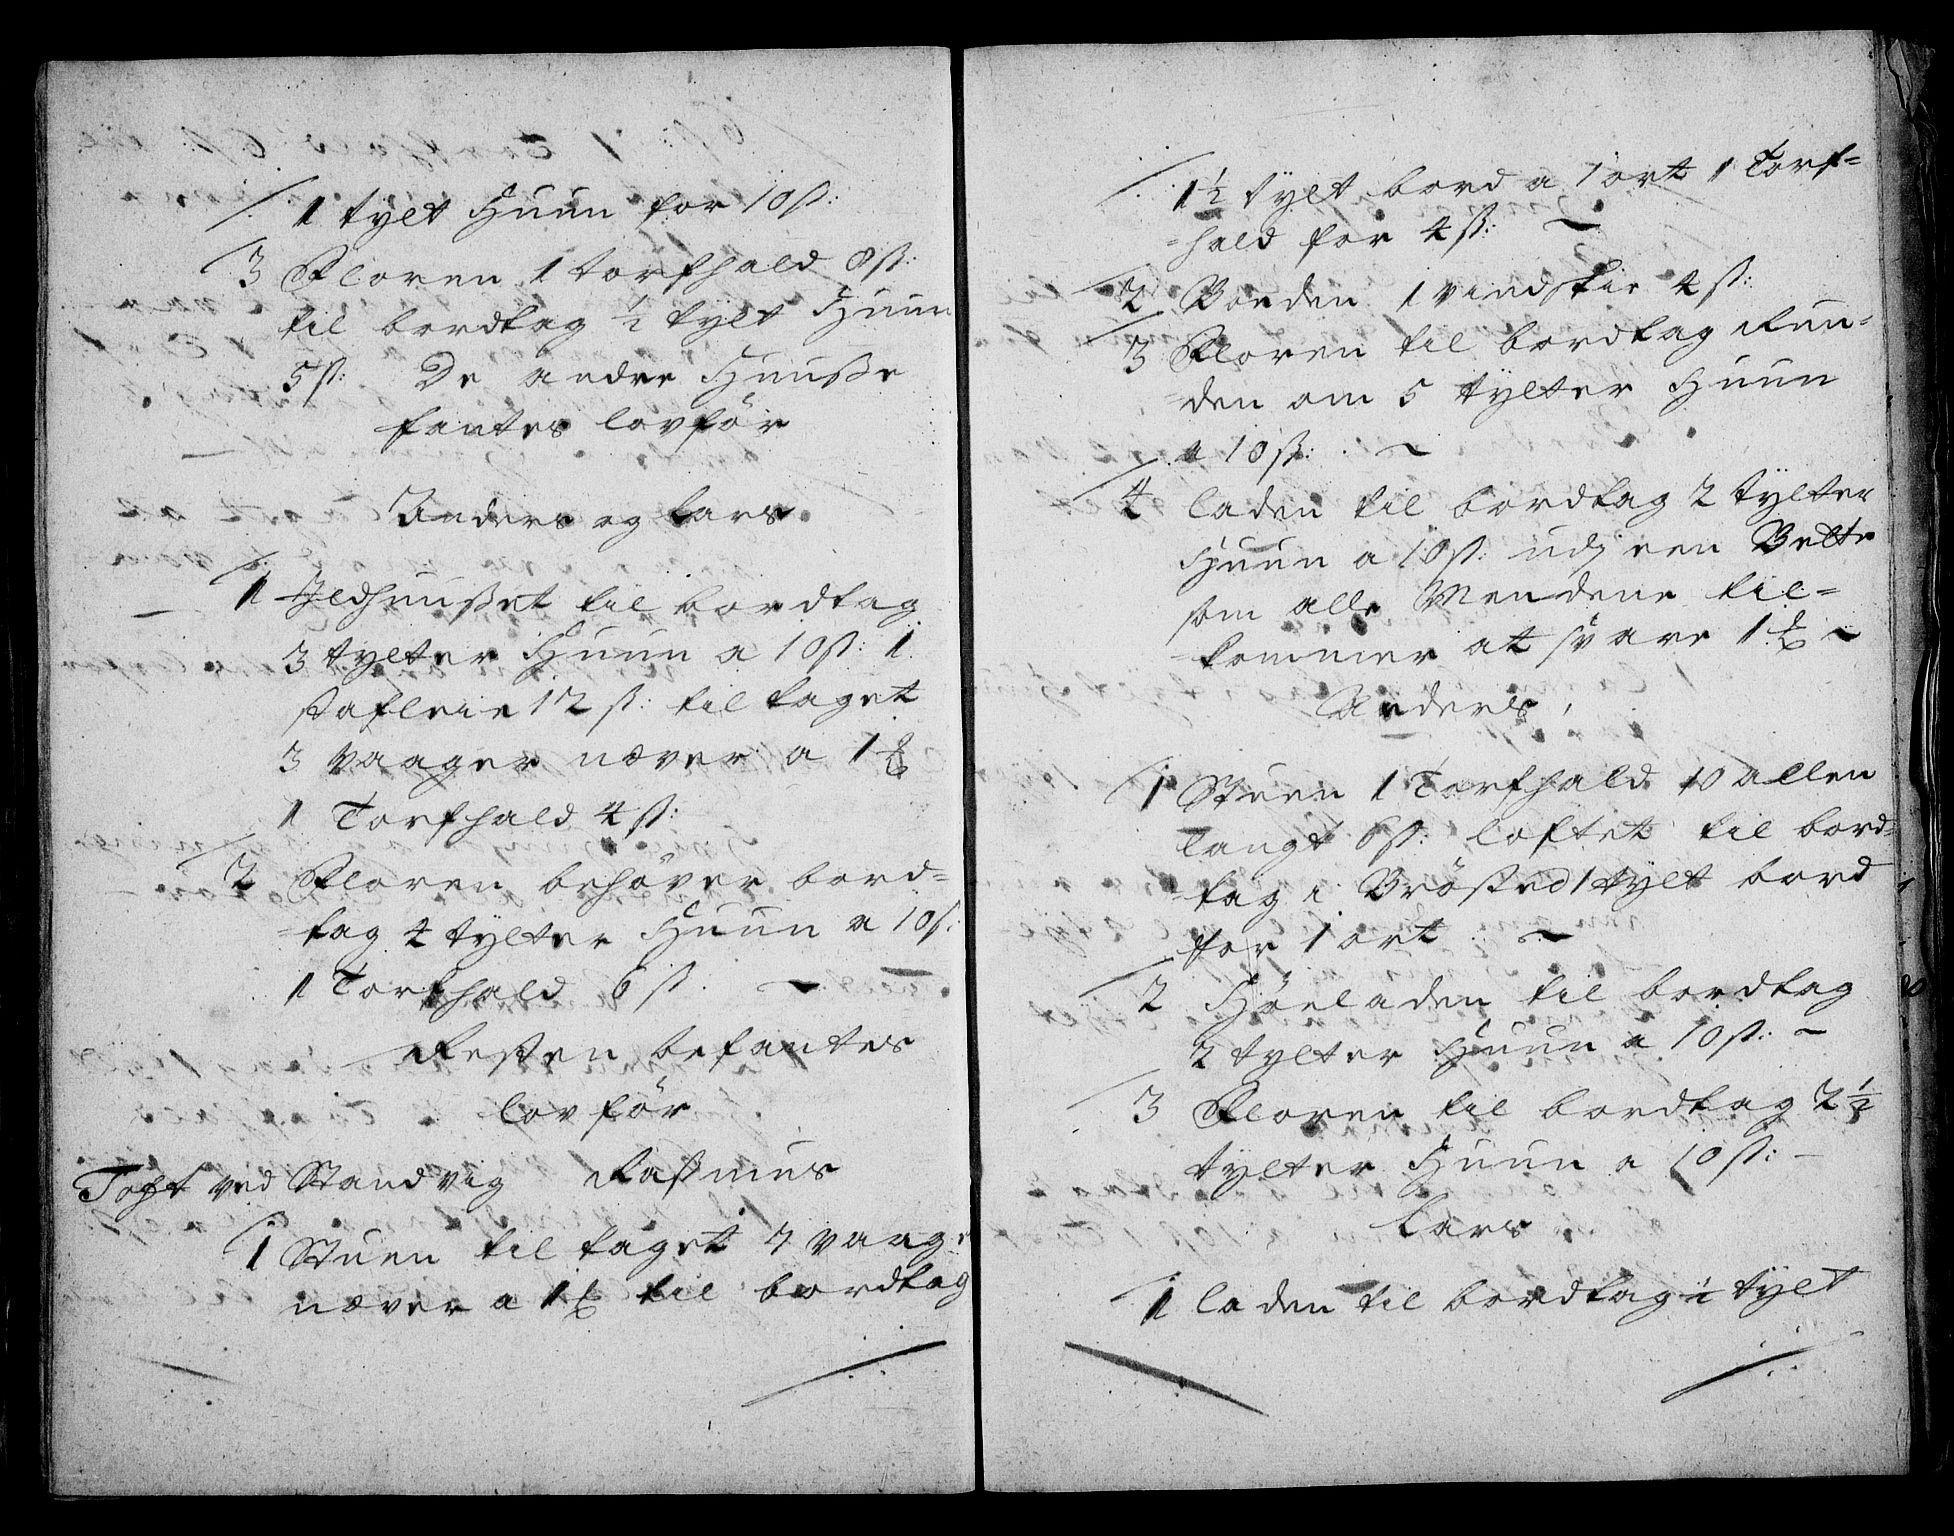 1 tylt Huun for 10 ß:
3 Floren 1 torfhald 8 ß:
til bordtag ½ tylt Huun
5 ß: De andre Huuße
fantes lovför
Anders og Lars
1 Ildhuußet til bordtag
3 tylter Huun a 10 ß: 1
stafleie 12 ß: til taget
3 vaager næver a 1
1 Torfhald 4 ß:
2 Floren behöver bord=
=tag 4 tylter Huun a 10 ß:
1 Torfhald 6 ß.
Resten befantes
lovför
Toft ved Standvig Raßmus
1 Stuen til taget 7 vaage
næver a 1 til bordtag
1½ tylt bord a 1 ort 1 Torf=
=hald for 4 ß:
2 Boeden 1 vindskie 4 ß:
3 Floren til bordtag Run=
=den om 5 tylter Huun
a 10 ß:
4 laden til bordtag 2 tylter
Huun a 10 ß: udj een
som alle Mendene til=
=kommer at svare 1
Anders
1 Stuen 1 Torfhald 10 allen
langt 6 ß: loftet til bord=
=tag i Bröstед 1 tylt bord
for 1 ort
2 Höeladen til bordtag
2 tylter Huun a 10 ß:
3 Floren til bordtag 2½
tylter Huun a 10 ß:
Lars
1 laden til bordtag 1 tylt